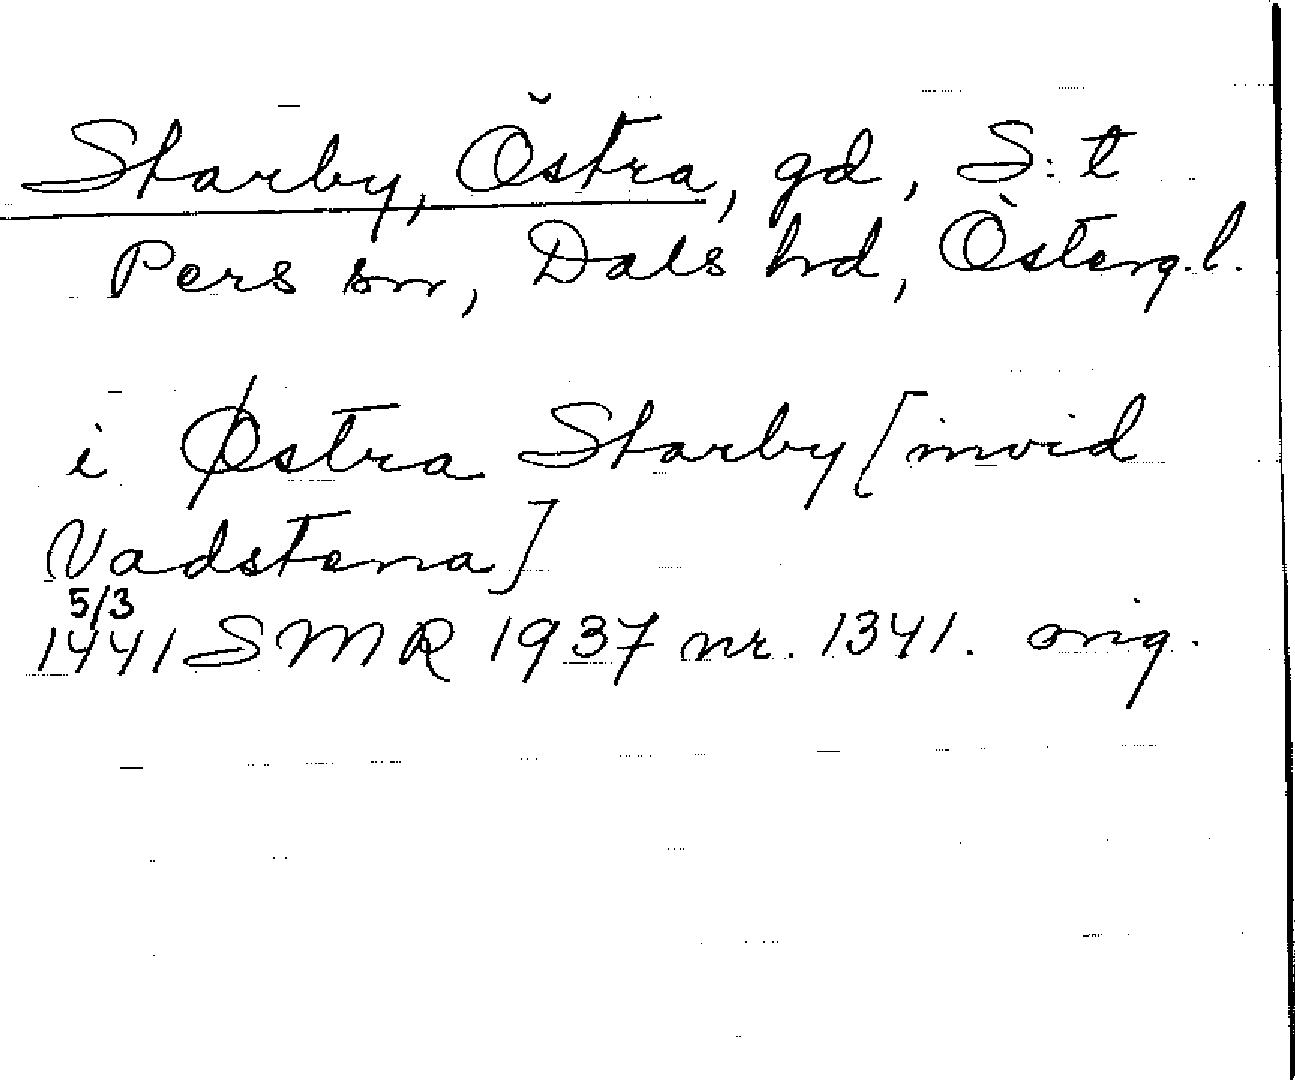 Starby, Östra, gd, S:t
Pers sn, Dals hd, Österg.l.
i Østra Starby [invid
Vadstena]
5/3
1441 SMR 1937 nr. 1341. orig.